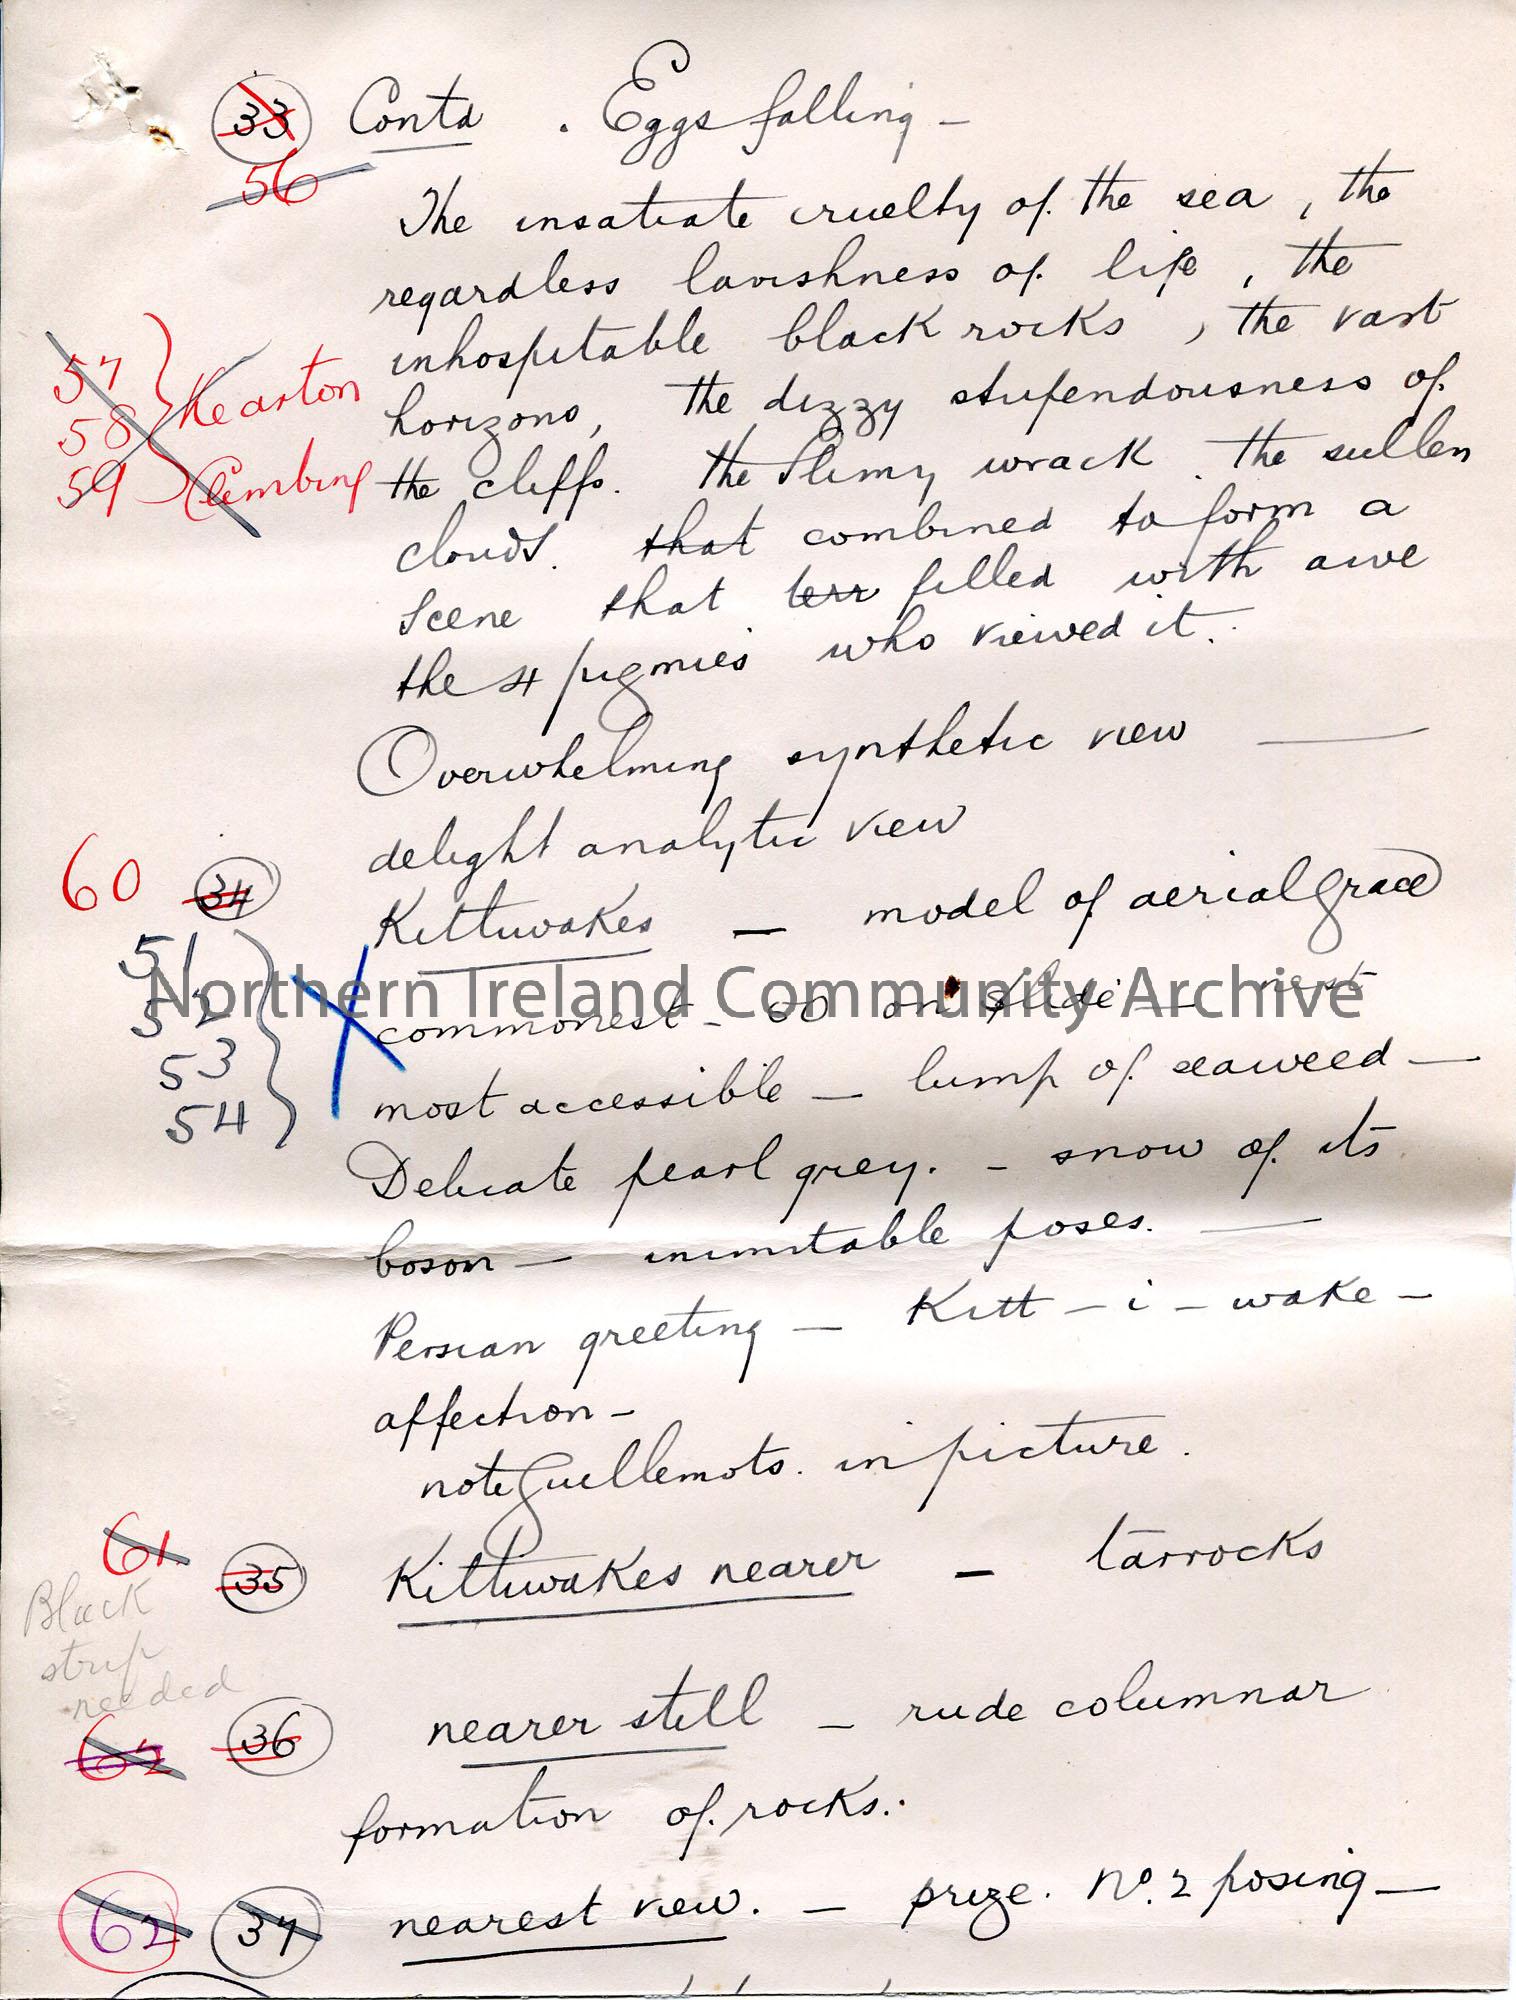 33 Contd . Eggs falling -
56
The insatiate cruelty of the sea, the
regardless lavishness of life, the
inhospitable black rocks, the vast
57
58
59
Kearton
Climbing
horizons, the dizzy stupendousness of
the cliffs. the slimy wrack. the sullen
clouds. that combined to form a
scene that terr filled with awe
the 4 pigmies who viewed it.
Overwhelming synthetic view —
delight analytic view
60 34 Kittiwakes — model of aerial grace
51
52
53
54
Northern Ireland Community Archive
commonest - on slide — nest
most accessible — lump of seaweed —
Delicate pearl grey. - snow of its
boson — inimitable poses. —
Persian greeting — Kitt - i - wake -
affection -
note Guillemots. in picture.
61 35 Kittiwakes nearer — tarrocks
Black
strip
needed
62 36 nearer still — rude columnar
formation of rocks.
62 37 nearest view. — prize. No. 2 posing —